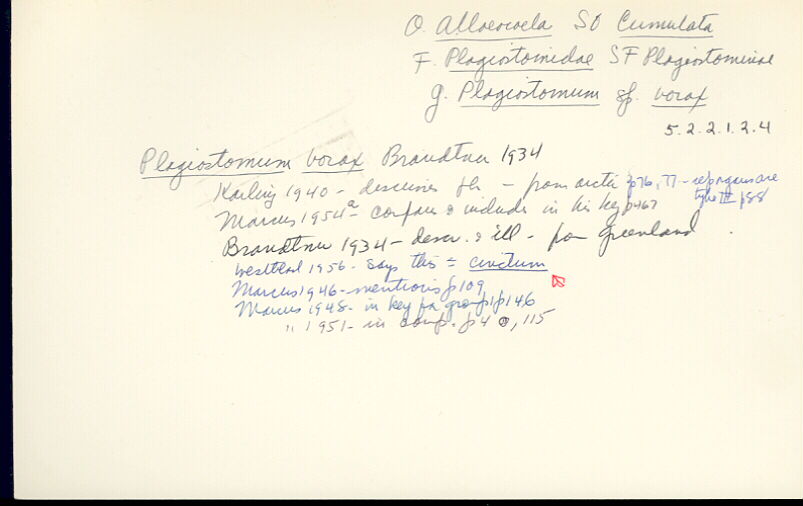 O. Alloeocoela SO Cumulata
F. Plagiostomidae SF Plagiostominae
g. Plagiostomum sp. vorax
5.2.2.1.2.4
Plagiostomum vorax Brandtner 1934
Karling 1940 - describes - from arctic p76, 77 - rep organs are
type III p88
Marcus 1954a - compare & include in his key p467
Brandtner 1934 - descr. & ill - from Greenland
Westblad 1956 - says this = cinctum
Marcus 1946 - mentions p109
Marcus 1948 - in key for group p146
" 1951 - in comp. p40, 115